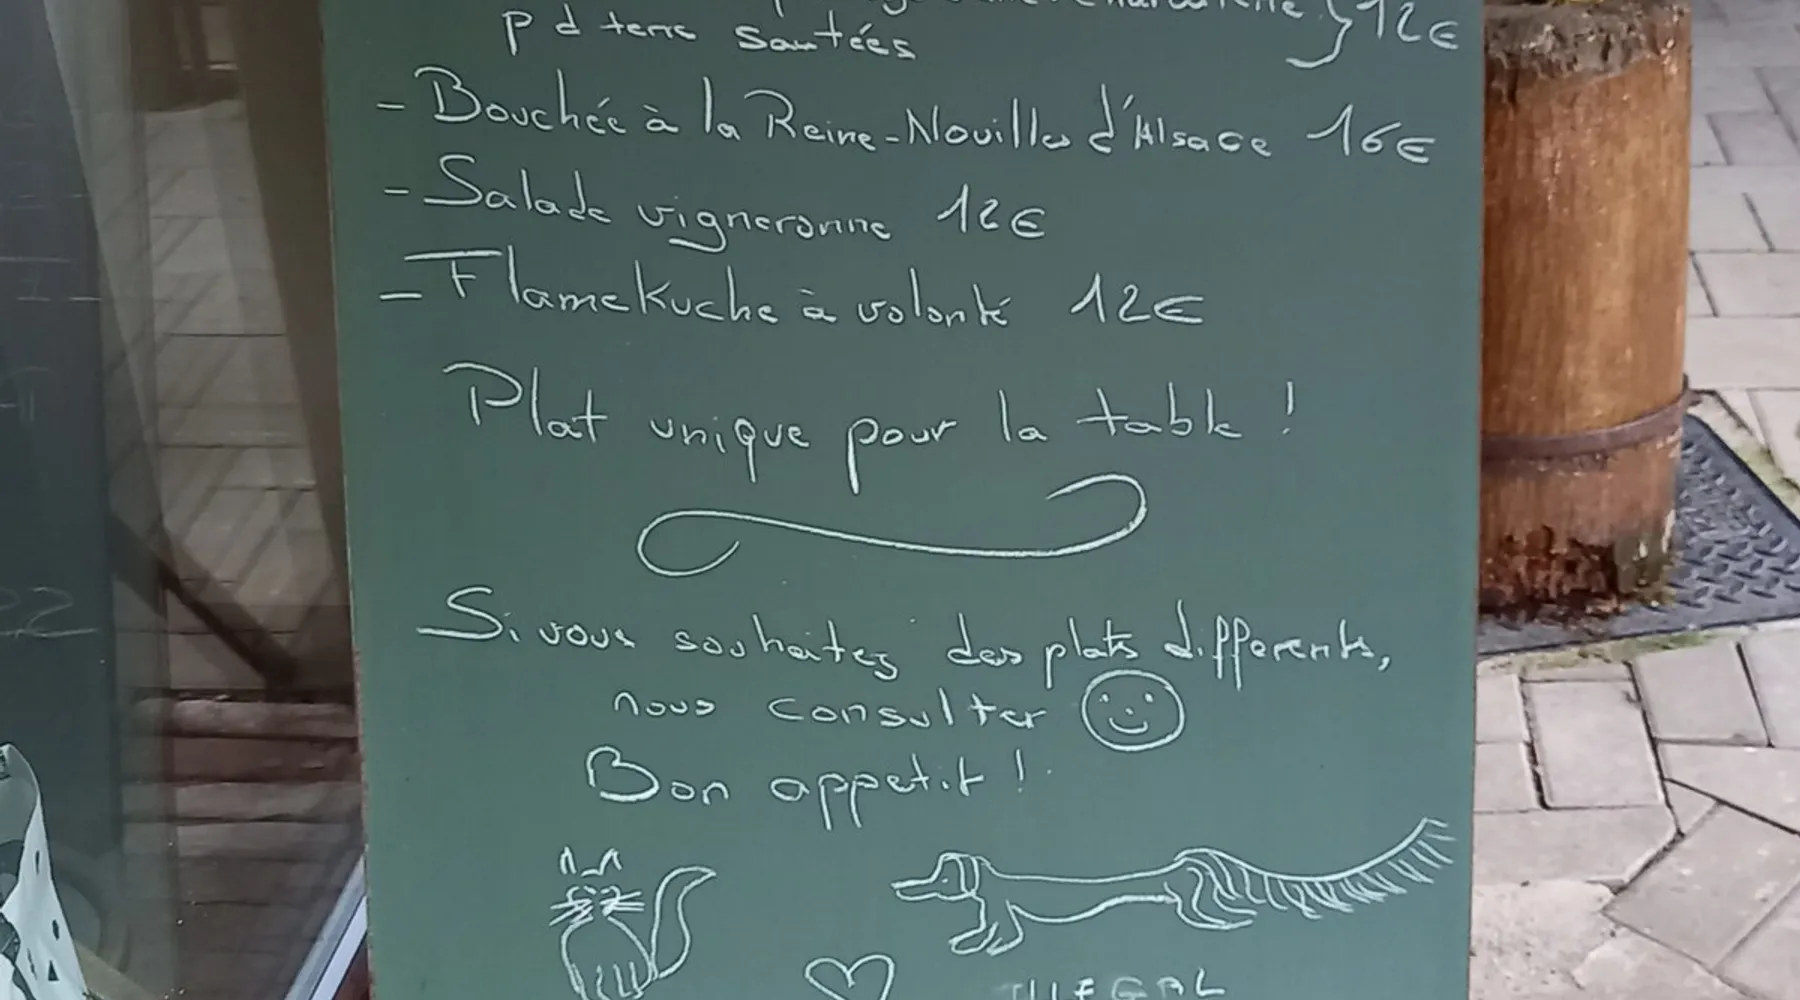 12€
p d terre sautées
- Bouchée à la Reine - Nouilles d'Alsace 16€
- Salade vigneronne 12€
- Flamekuche à volonté 12€
Plat unique pour la table !
Si vous souhaitez des plats differents,
nous consulter
Bon appetit !